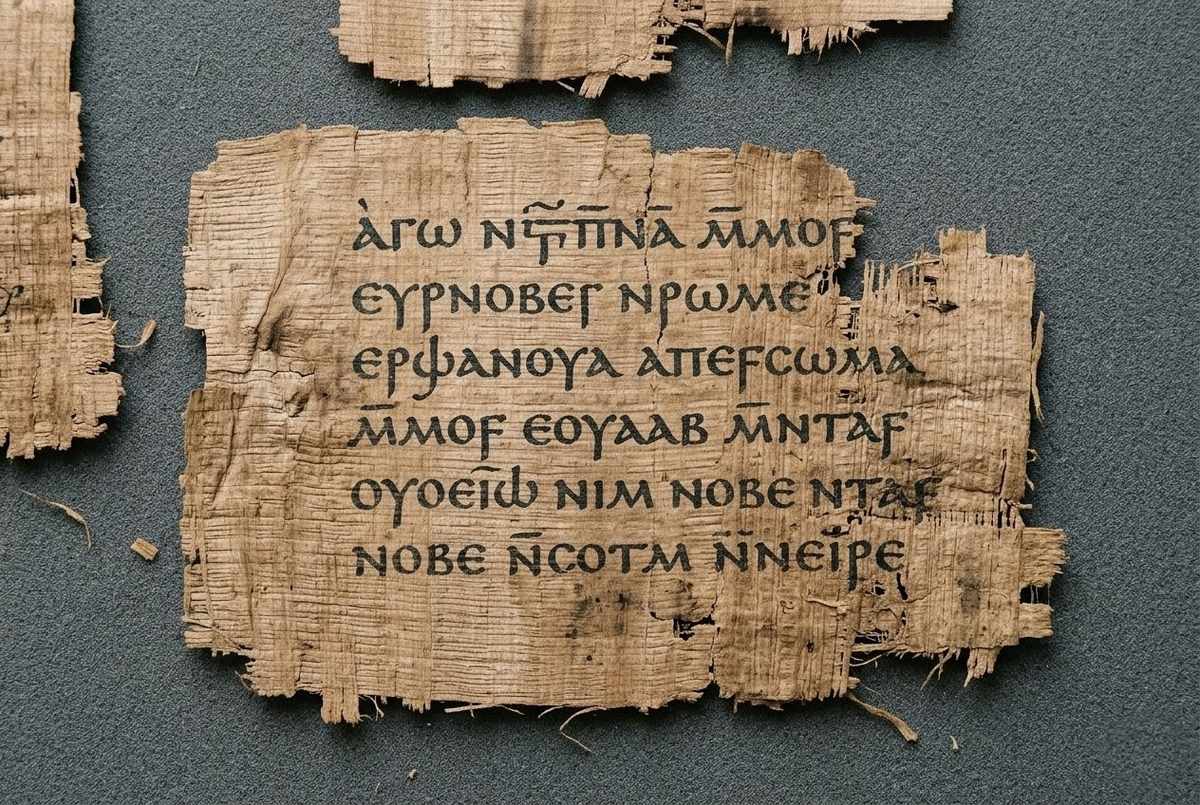 ⲁ̀ⲅⲱ ⲙ̄ⲙⲟϥ
ⲉⲩⲣⲛⲟⲃⲉⲅ ⲛⲣⲱⲙⲉ
ⲁⲡⲉϥⲥⲱⲙⲁ
ⲙ̄ⲙⲟϥ ⲉⲟⲩⲁⲁⲃ ⲙ̄ⲛⲧⲁϥ
ⲟⲩⲟⲉⲓ̄ϣ ⲛⲓⲙ ⲛⲟⲃⲉ ⲛⲧⲁϥ
ⲛⲟⲃⲉ ⲛ̄ⲥⲟⲧⲙ ⲛ̄ⲛⲉⲓ̈ⲣⲉ